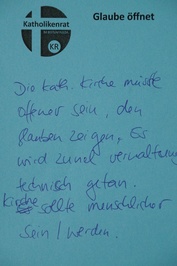 Katholikenrat
KR
Glaube öffnet
Die kath. Kirche müsste
offener sein, den
Glauben zeigen. Es
wird zuviel verwaltung
technisch getan.
Kirche sollte menschlicher
sein / werden.